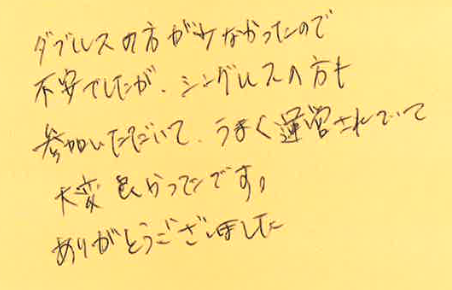 ダブルスの方が少なかったので
不安でしたが、シングルスの方も
参加いただいて、うまく運営されていて
大変良かったです。
ありがとうございました